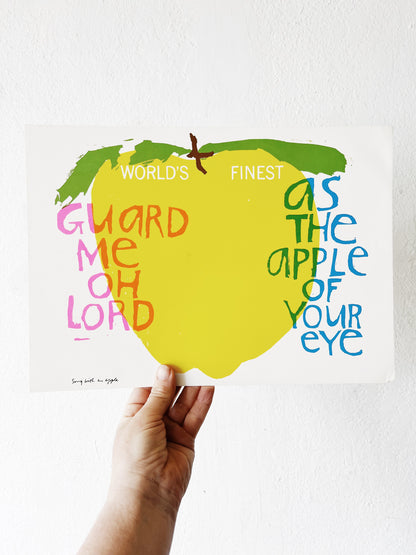 WORLD'S FINEST
GUARD
ME
OH
LORD
as
THe
aPPLe
OF
YOUR
eye
Song with an apple